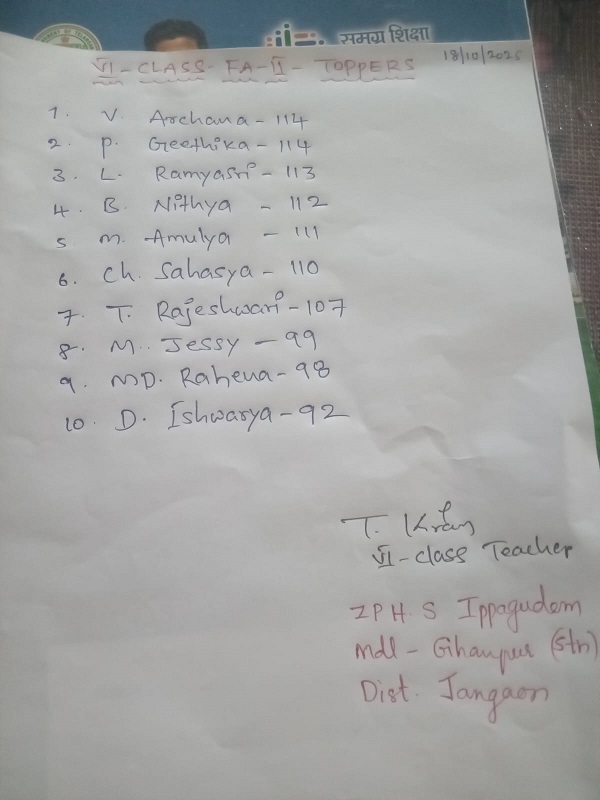 समग्र शिक्षा
18/10/2025
VI - CLASS - FA - II - TOPPERS
1. V. Archana - 114
2. P. Geethika - 114
3. L. Ramyasri - 113
4. B. Nithya - 112
5 M. Amulya - 111
6. Ch. Sahasya - 110
7. T. Rajeshwari - 107
8. M. Jessy - 99
9. MD. Rahena - 98
10. D. Ishwarya - 92
T. Kiran
VI - class Teacher
ZPH S Ippagudem
Mdl - Ghanpur (Stn)
Dist. Jangaon